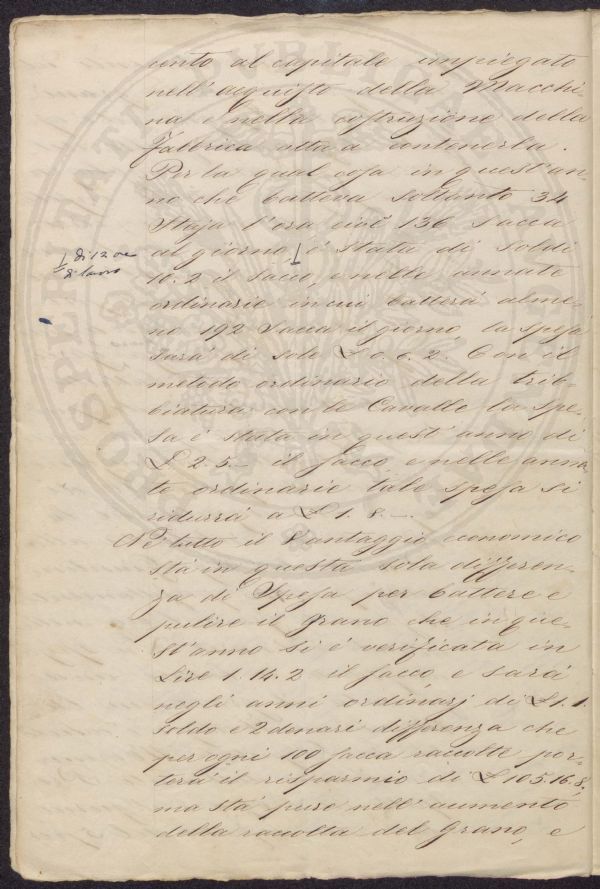 cento al capitale impiegato
nell'acquisto della Macchi
na e nella costruzione della
Fabbrica atta a contenerla.
Per la qual cosa in quest'an-
no che batteva soltanto 34
Staja l'ora cioè 136 Sacca
al giorno è stata di Soldi
di 12 ore
di lavoro
10.2 il sacco, e nelle annate
ordinarie in cui batterà alme-
no 192 Sacca il giorno la spesa
sarà di sole £ 0. 6. 2. Con il
metodo ordinario della trib-
biatura con le Cavalle la spe-
sa è stata in quest'anno di
£ 2. 5. — il sacco e nelle anna-
te ordinarie tale spesa si
ridurrà a £ 1. 8. —.
Nè tutto il Vantaggio economico
stà in questa sola differen-
za di Spesa per battere e
pulire il grano che in que-
st'anno si è verificata in
Lire 1. 14. 2 il sacco, e sarà
negli anni ordinarj di £ 1. 1
soldo e 2 denari differenza che
per ogni 100 sacca raccolte por-
terà il risparmio di £ 105. 16. 8.
ma stà pure nell'aumento
della raccolta del grano, e
PROSPERITATI PUBLICAE